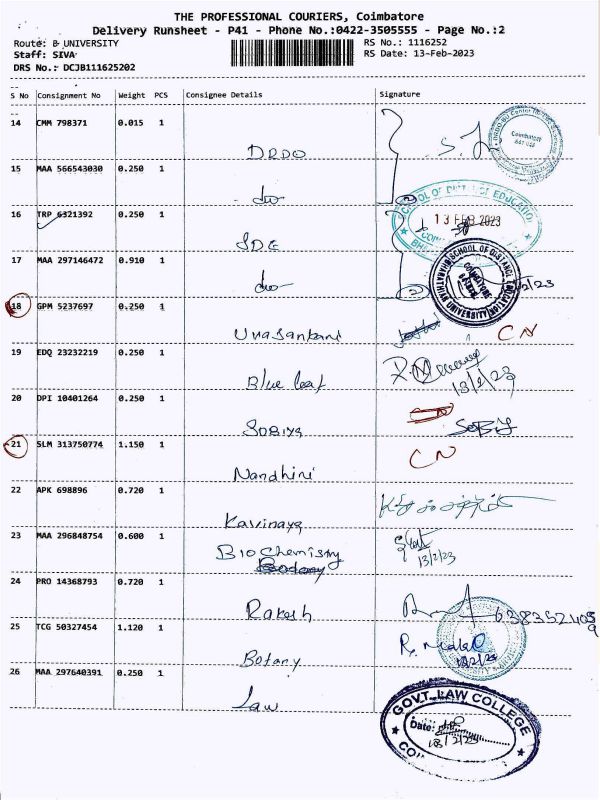 THE PROFESSIONAL COURIERS, Coimbatore
Delivery Runsheet - P41 - Phone No.:0422-3505555 - Page No.:2
Route: B UNIVERSITY
RS No.: 1116252
Staff: SIVA
RS Date: 13-Feb-2023
DRS No.: DCJB111625202
S No Consignment No Weight PCS Consignee Details Signature
14 CMM 798371 0.015 1
DRDO
Coimbatore
641 046
15 MAA 566543030 0.250 1
do
16 TRP 6321392 0.250 1
SCHOOL OF DISTANCE EDUCATION
13 FEB 2023
SDE
17 MAA 297146472 0.910 1
SCHOOL OF DISTANCE EDUCATION
BHARATHIAR UNIVERSITY
COIMBATORE
do
18 GPM 5237697 0.250 1
Umasankari
CN
19 EDQ 23232219 0.250 1
Blue leaf
13/2/23
20 DPI 10401264 0.250 1
Sobiya
21 SLM 313750774 1.150 1
CN
Nandhini
22 APK 698896 0.720 1
Kavinaya
23 MAA 296848754 0.600 1
Bio Chemistry
13/2/23
24 PRO 14368793 0.720 1
Rakesh
25 TCG 50327454 1.120 1
Botany
26 MAA 297640391 0.250 1
Law
GOVT. LAW COLLEGE
Date:
13/2/23